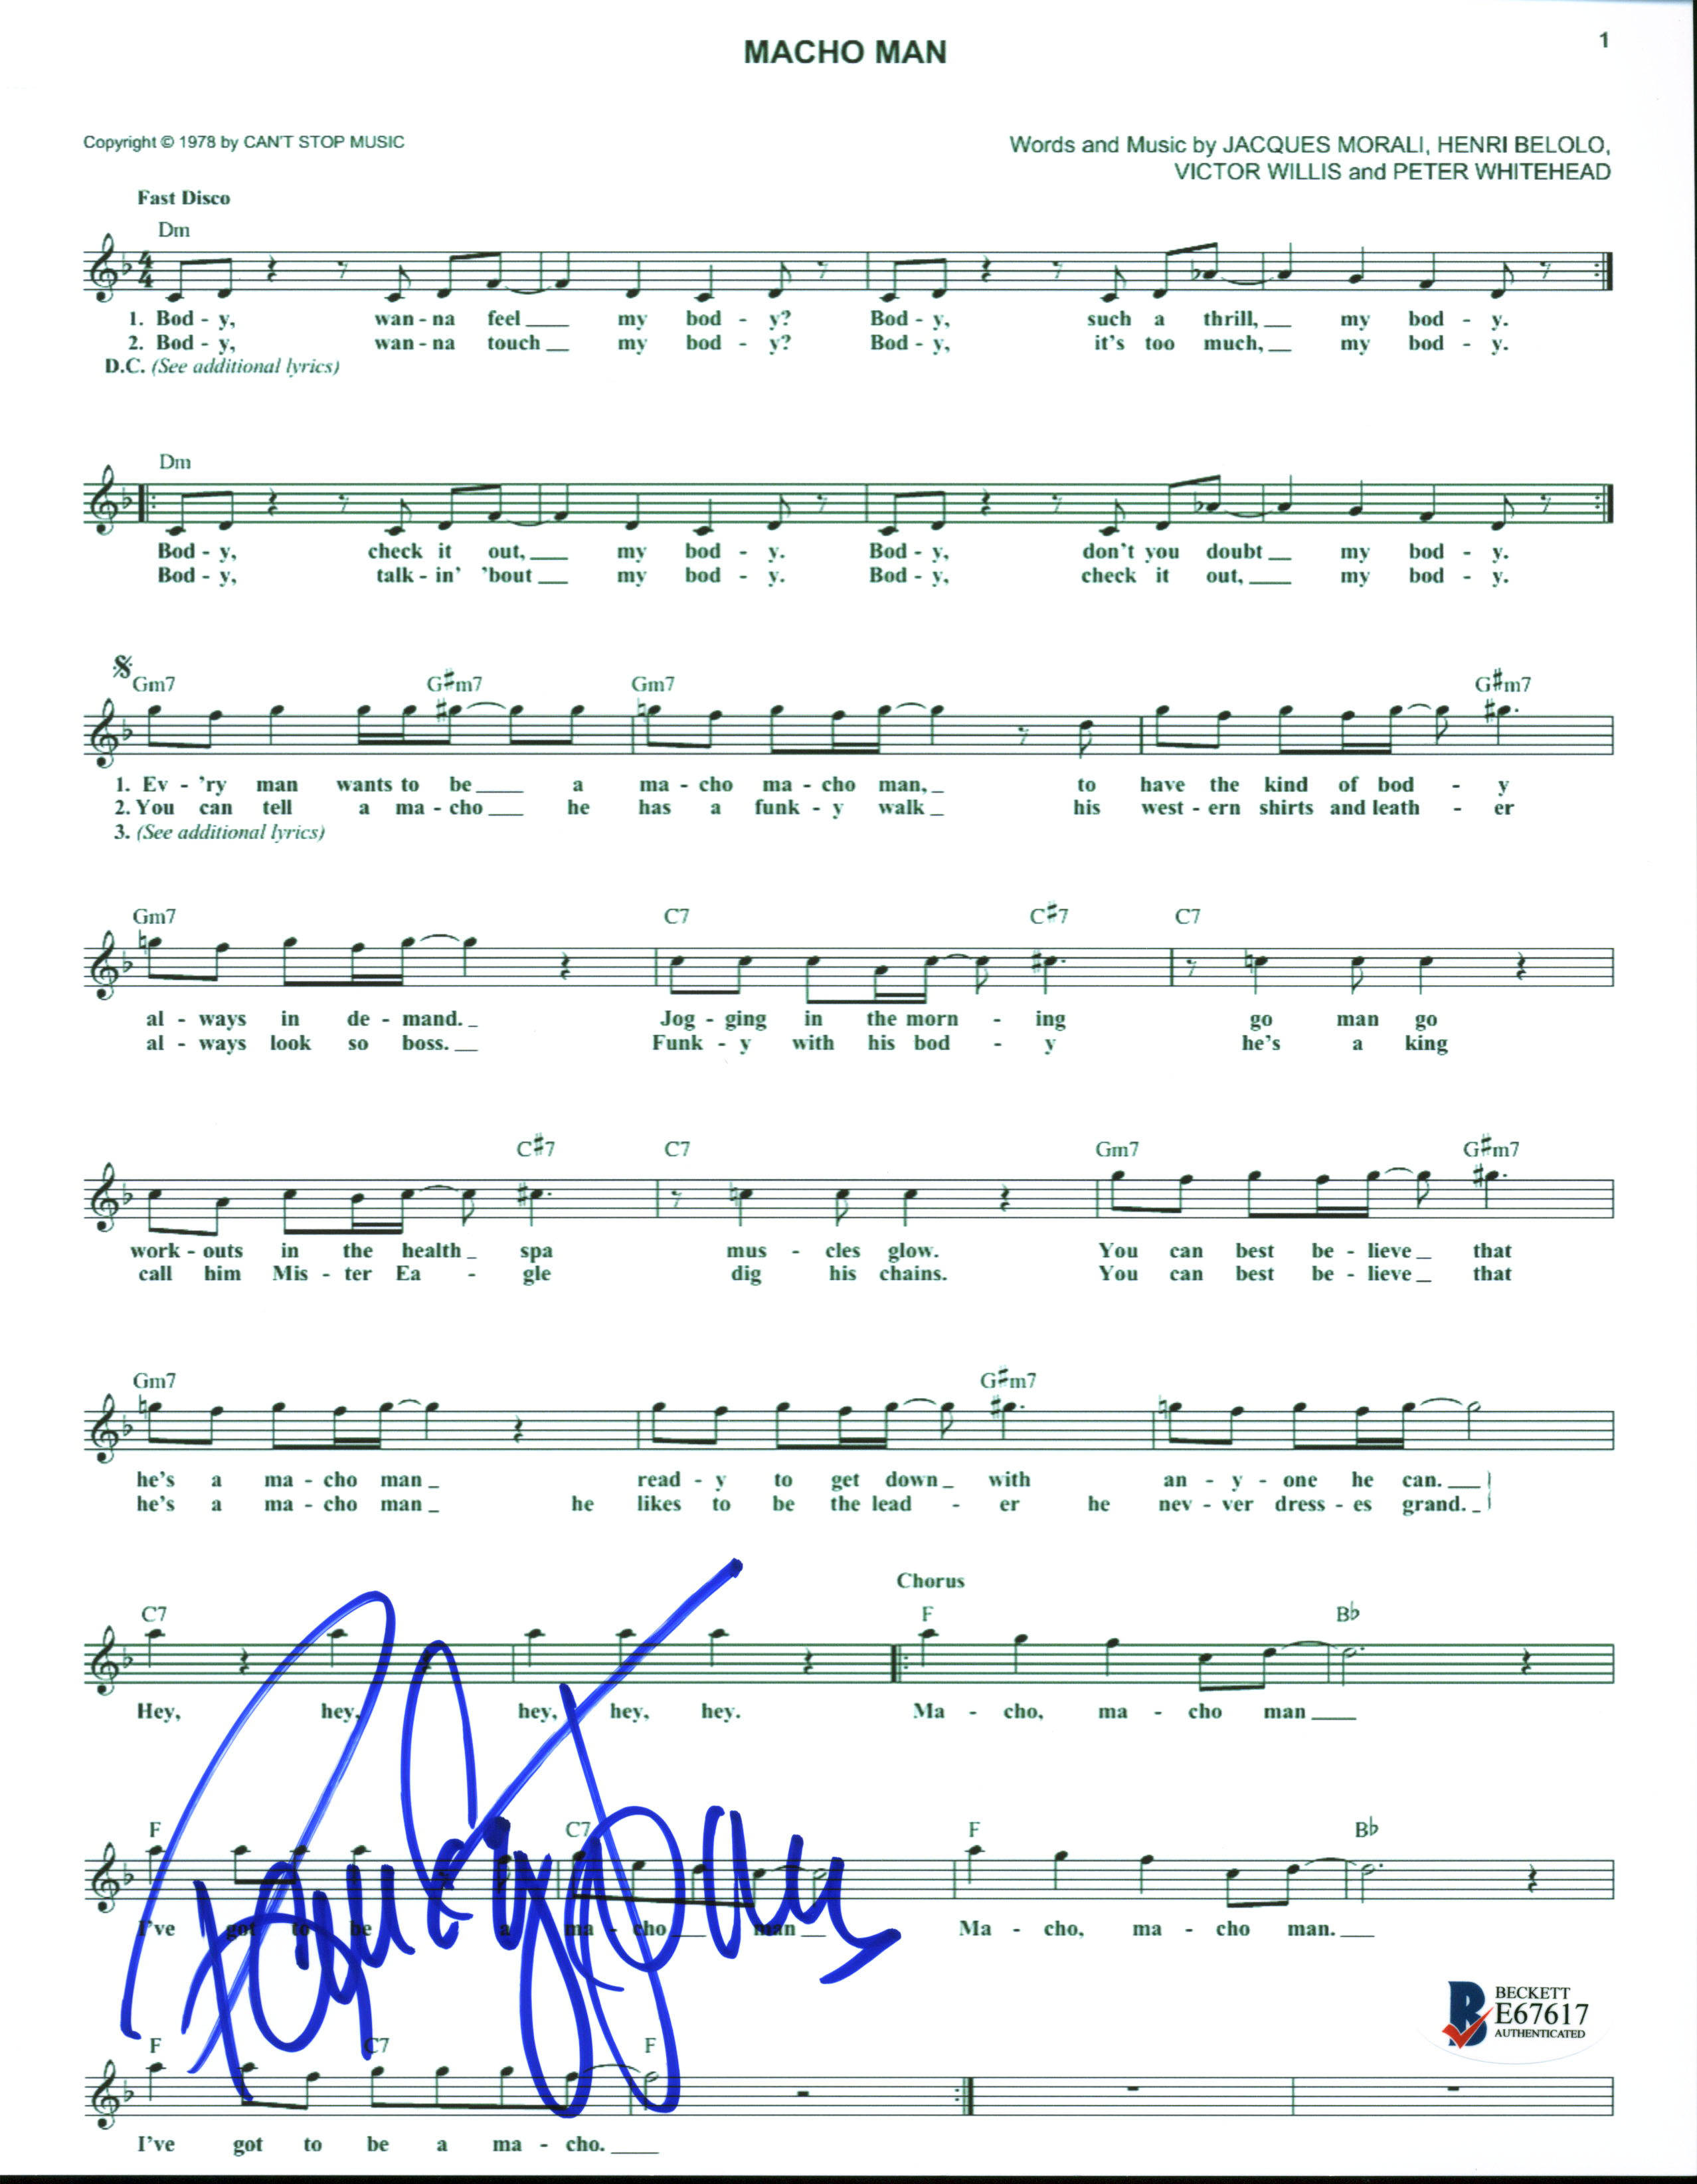 MACHO MAN
1
Copyright © 1978 by CAN'T STOP MUSIC
Words and Music by JACQUES MORALI, HENRI BELOLO,
VICTOR WILLIS and PETER WHITEHEAD
Fast Disco
Dm
1. Bod - y, wan - na feel my bod - y? Bod - y, such a thrill, my bod - y.
2. Bod - y, wan - na touch my bod - y? Bod - y, it's too much, my bod - y.
D.C. (See additional lyrics)
Dm
Bod - y, check it out, my bod - y. Bod - y, don't you doubt my bod - y.
Bod - y, talk - in' 'bout my bod - y. Bod - y, check it out, my bod - y.
Gm7 G#m7 Gm7 G#m7
1. Ev - 'ry man wants to be a ma - cho ma - cho man, to have the kind of bod - y
2. You can tell a ma - cho he has a funk - y walk his west - ern shirts and leath - er
3. (See additional lyrics)
Gm7 C7 C#7 C7
al - ways in de - mand. Jog - ging in the morn - ing go man go
al - ways look so boss. Funk - y with his bod - y he's a king
C#7 C7 Gm7 G#m7
work - outs in the health spa mus - cles glow. You can best be - lieve that
call him Mis - ter Ea - gle dig his chains. You can best be - lieve that
Gm7 G#m7
he's a ma - cho man read - y to get down with an - y - one he can.
he's a ma - cho man he likes to be the lead - er he nev - ver dress - es grand.
Chorus
C7 F Bb
Hey, hey, hey, hey, hey. Ma - cho, ma - cho man
F C7 F Bb
I've got to be a ma - cho man Ma - cho, ma - cho man.
BECKETT
E67617
AUTHENTICATED
F C7 F
I've got to be a ma - cho.